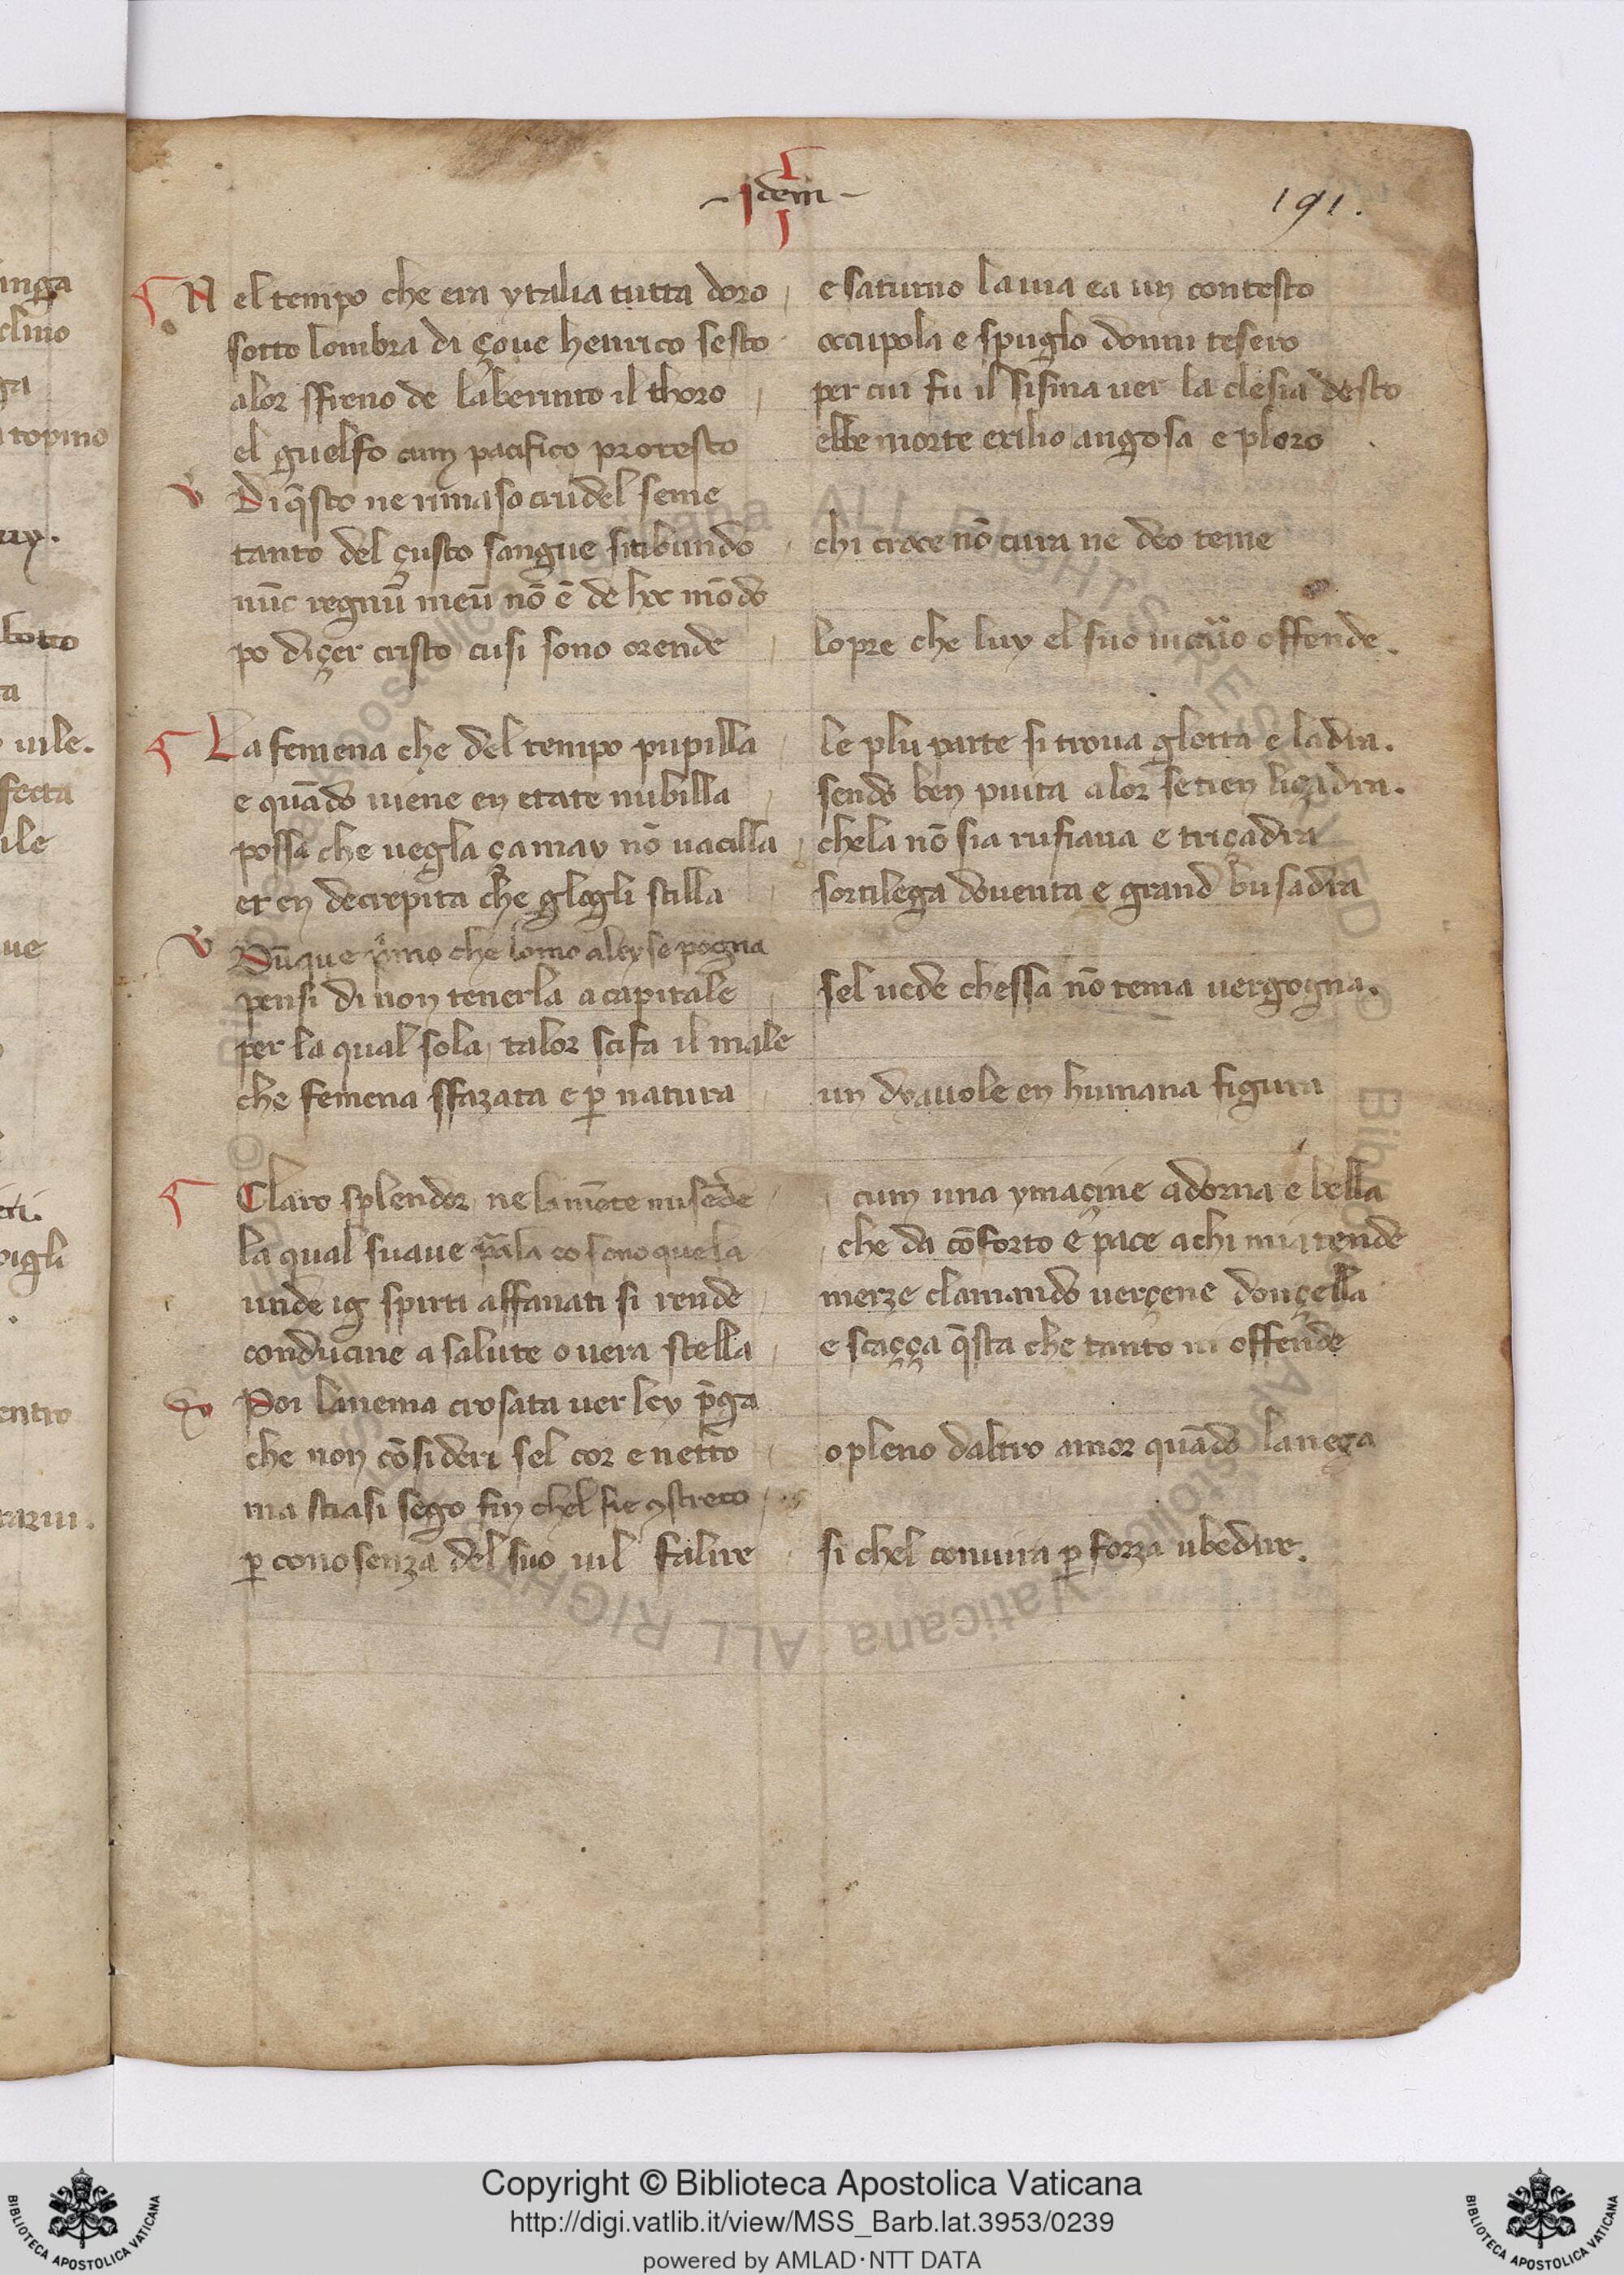 inga
clino
ga
topino
uy.
botto
ra
uile.
fecta
ile
ue
eti.
oigli
entro
rarui.
- Idem -
191.
Nel tempo che era ytalia tutta doro / e saturno lauia ea un contesto
sotto lombra di çoue henrico sesto / occupola e spuglo donni tesero
alor sfreno de laberinto il thoro / per cui fu il sisma uer la clesia desto
el guelfo cum pacifico protesto ebbe morte exilio angosa e ploro .
v Di q̄sto ne rimaso crudel seme
tanto del çusto sangue sitibundo / chi croce nō cura ne deo teme
nūc regnū meū nō ē de hoc mōdo
po diçer cristo cusi sono orende / lopre che luy el suo uicario offende.
La femena che del tempo pupilla le plu parte si troua glotta e ladra.
e quādo uiene en etate nubilla / sendo ben puita alor se tien liçadra.
possa che uegla çamay nō uacilla / chela nō sia rufiana e triçadra
et en decrepita che glogli stilla sortilega douenta e grand busadra
v Dūque primo che lomo aley se pogna
pensi di non tenerla a capitale / sel uede chessa nō tema uergogna.
per la qual sola talor scifa il male
che femena sfazata e p̱ natura / un dyauole en humana figura
Claro splendor ne la mēte mi sēde / cum una ymaçine adorna e bella
la qual suaue parla co sono quela / che da cōforto e pace achi mia tende
unde ig spirti affanati si rende / merze clamando uerçene donçella
conducine a salute o uera stella / e scaçça q̄sta che tanto ni offende
vo Poi lanema crosata uer ley p̄ga
che non cōsideri sel cor e netto / o pleno daltro amor quādo la nega
ma stiasi sego fin chel fie ꝯstreto /
p̱ conosenza del suo uil falire / si chel conuira p̱ forza ubedire.
Copyright © Biblioteca Apostolica Vaticana
http://digi.vatlib.it/view/MSS_Barb.lat.3953/0239
powered by AMLAD·NTT DATA
BIBLIOTECA APOSTOLICA VATICANA
BIBLIOTECA APOSTOLICA VATICANA